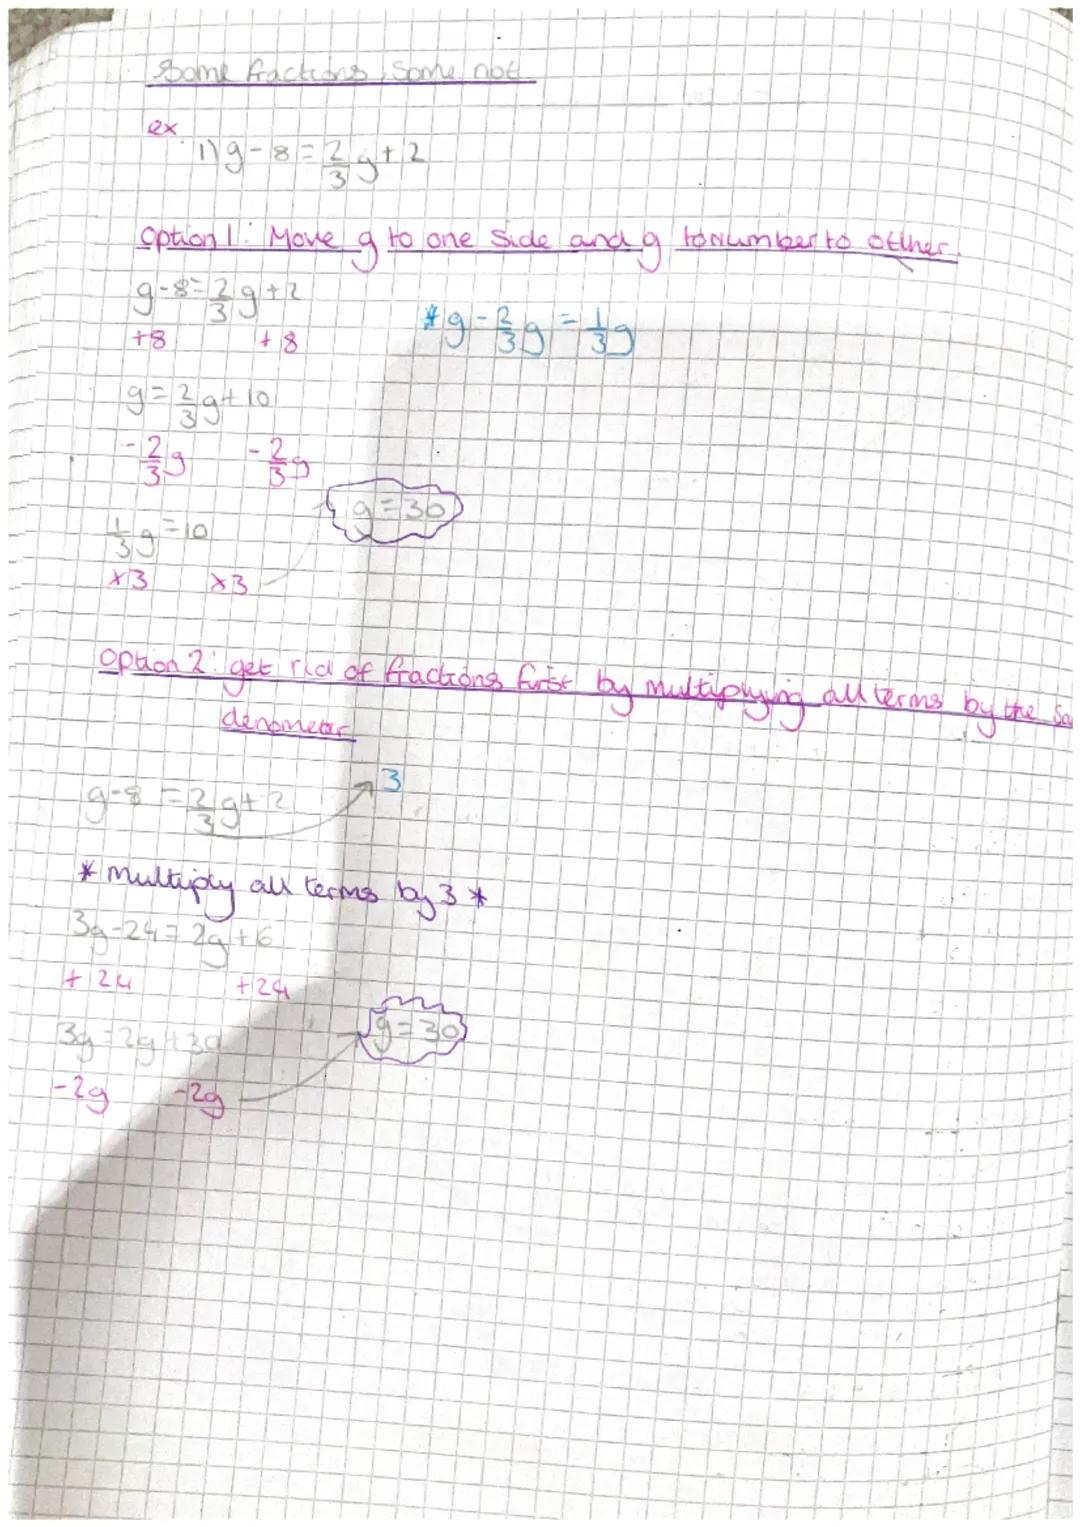 Some fractions, Some not
ex
1) g - 8 = 2/3 g + 2
Option 1: Move g to one side and g to Number to other.
g - 8 = 2/3 g + 2
+8 +8
* g - 2/3 g = 1/3 g
g = 2/3 g + 10
- 2/3 g - 2/3 g
1/3 g = 10
×3 ×3
g = 30
Option 2: get rid of fractions first by multiplying all terms by the
denometer
g - 8 = 2/3 g + 2
3
* multiply all terms by 3 *
3g - 24 = 2g + 6
+ 24 + 24
3g = 2g + 30
- 2g - 2g
g = 30